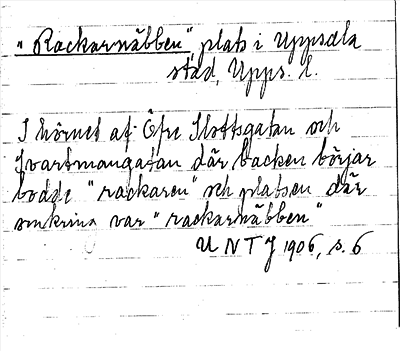 "Rackarnäbben", plats i Uppsala
stad, Upps. l.
I hörnet af Öfre Slottsgatan och
Svartmangatan där backen börjar
bodde "rackaren" och platsen där
omkring var "rackarnäbben"
U N T J 1906, s. 6